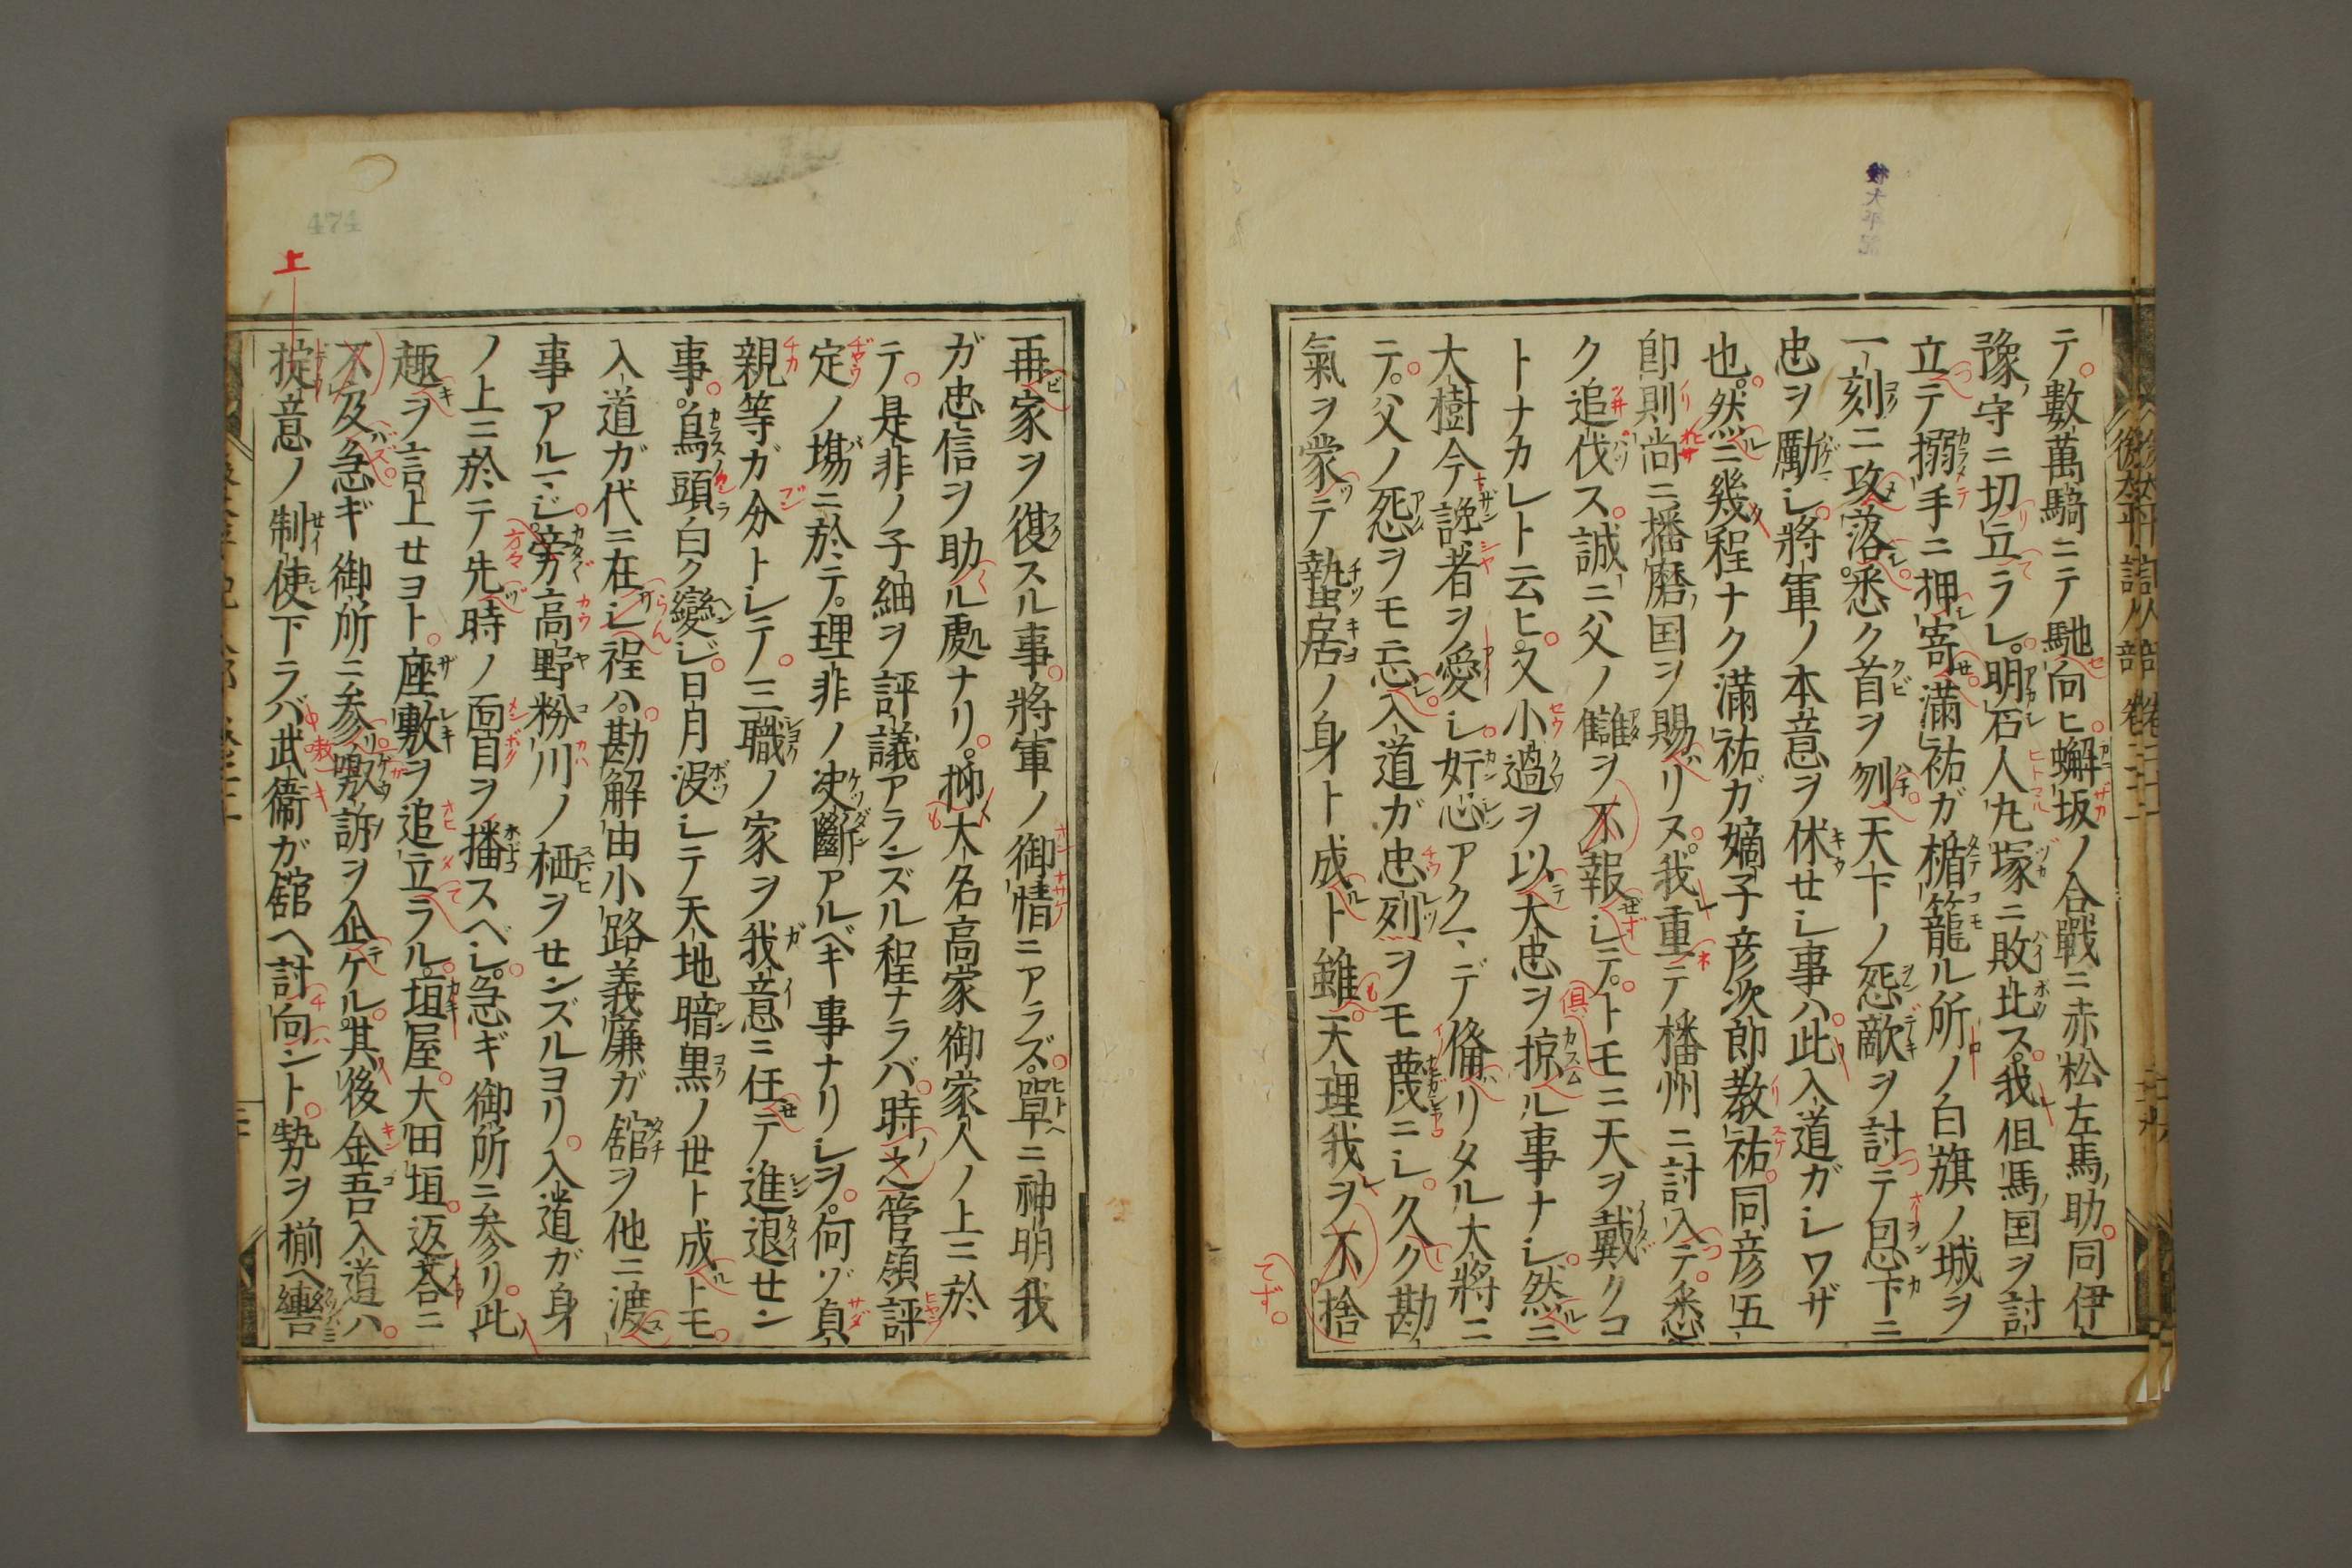 テ數萬騎ニテ馳向ヒ蠏坂ノ合戰ニ赤松左馬助同伊
豫守ニ切立ラレ明石人丸塚ニ敗北ス我但馬国ヲ討
立テ搦手ニ押寄滿祐ガ楯籠ル所ノ白旗ノ城ヲ
一刻ニ攻落悉ク首ヲ刎天下ノ怨敵ヲ討テ恩下ニ
忠ヲ勵シ將軍ノ本意ヲ休セシ事ハ此入道ガシワザ
也然ニ幾程ナク滿祐ガ嫡子彦次郎教祐同彦五
郎則尚ニ播磨国ヲ賜リヌ我重テ播州ニ討入テ悉
ク追伐ス誠ニ父ノ讎ヲ不報シテトモニ天ヲ戴クコ
トナカレト云ヒ又小過ヲ以大忠ヲ掠ル事ナシ然ニ
大樹今讒者ヲ愛シ奸悪アクマデ倫リタル大將ニ
テ父ノ怨ヲモ忘入道ガ忠烈ヲモ蔑ニシ久ク勘
氣ヲ蒙テ蟄居ノ身ト成ト雖天理我ヲ不捨
再家ヲ復スル事將軍ノ御情ニアラズ單ニ神明我
ガ忠信ヲ助ル處ナリ抑大名高家御家人ノ上ニ於
テ是非ノ子細ヲ評議アランズル程ナラバ時之管領評
定ノ場ニ於テ理非ノ決斷アルベキ事ナリシヲ何ゾ貞
親等ガ分トシテ三職ノ家ヲ我意ニ任テ進退セン
事烏頭白ク變ジ日月沒シテ天地暗黒ノ世ト成トモ
入道ガ代ニ在シ程ハ勘解由小路義廉ガ舘ヲ他ニ渡
事アルマジ旁高野粉川ノ栖ヲセンズルヨリ入道ガ身
ノ上ニ於テ先時ノ面目ヲ播スベシ急ギ御所ニ参リ此
趣ヲ言上セヨト座敷ヲ追立ラル垣屋大田垣返答ニ
不及急ギ御所ニ参リ嗷訴ヲ企ケル其後金吾入道ハ
掟意ノ制使下ラバ武衞ガ舘ヘ討向ント勢ヲ揃ヘ轡
上
474
後太平記